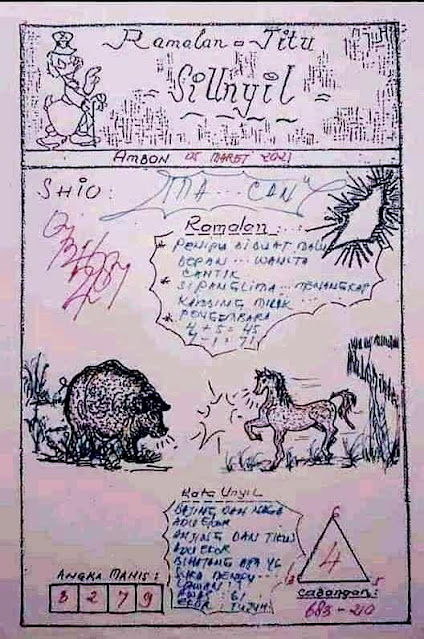 Ramalan - Jitu
"Si Unyil"
AMBON 05 MARET 2021
SHIO:
"MA... CAN"
Ramalan...:
* PENIPU DIBUAT MALU
DEPAN... WANITA
CANTIK
* SI PANGLIMA... MENANGKAP
KAMBING
* PENGEMBARA
4 + 5 = 45
7 - 1 = 71
Kata Unyil
DAN NAGA
ADU EKOR
ANJING DAN TIKUS
ADU EKOR
BINATANG APA YG
AWAS: 61
EKOR: TUJUH
ANGKA MANIS:
3 2 7 9
6
4
5
CADANGAN:
683 - 210